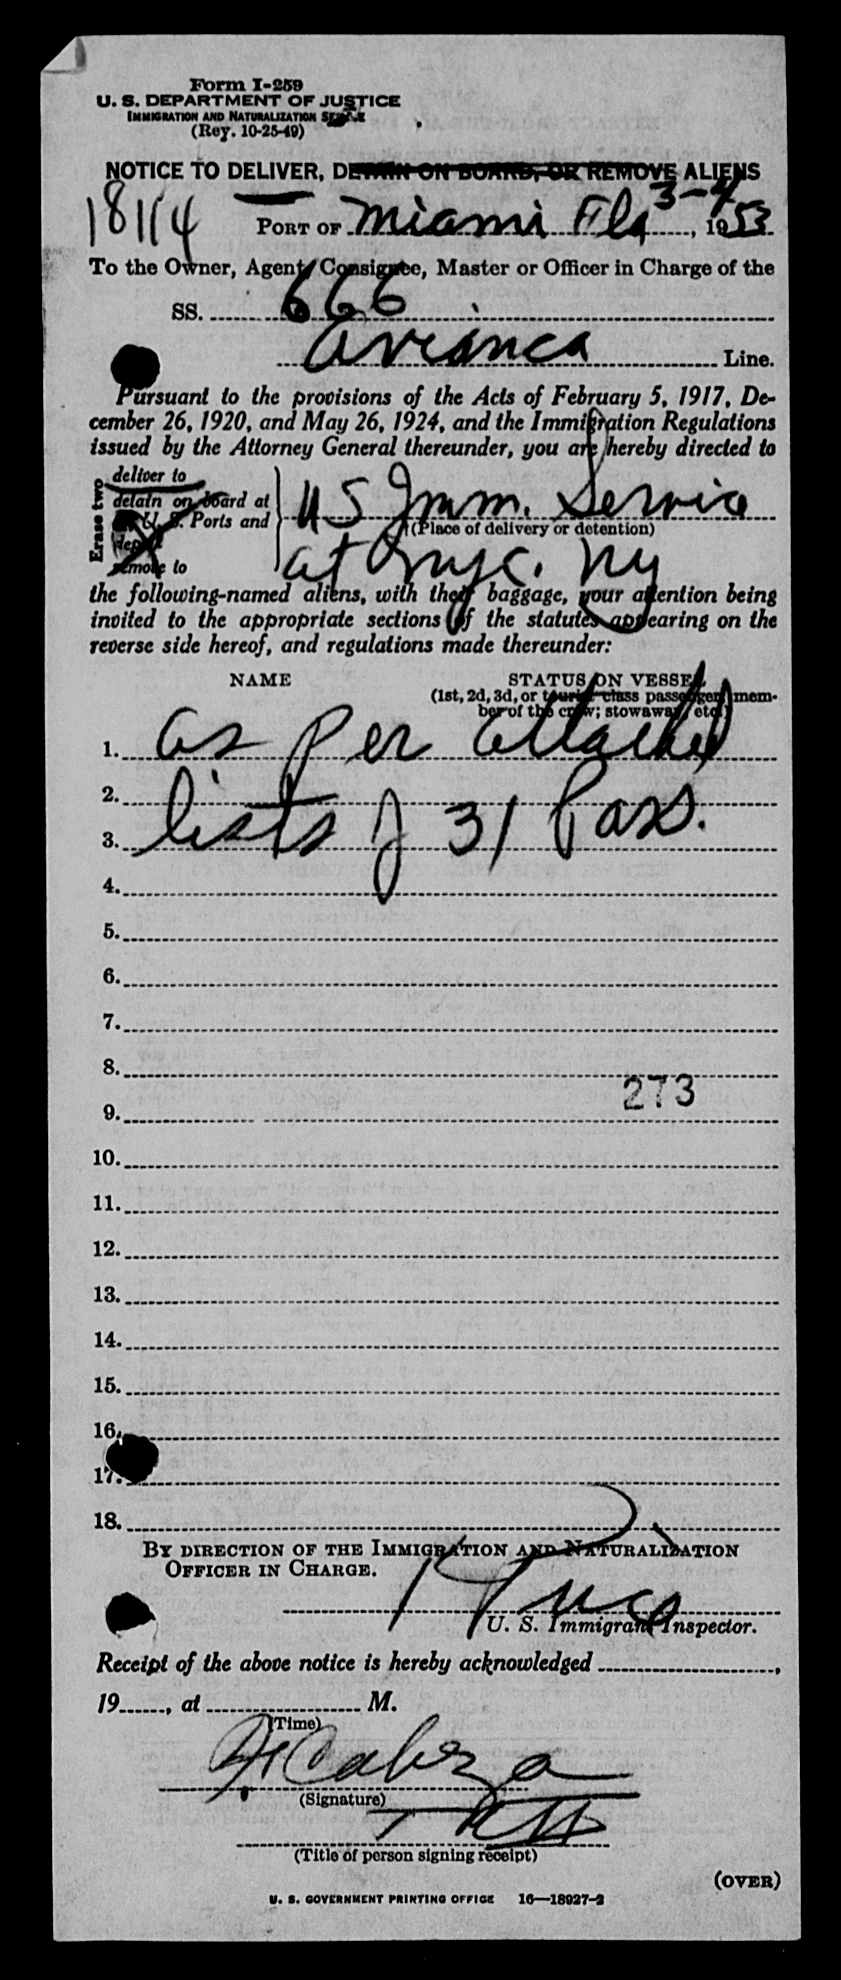 Form I-259
U. S. DEPARTMENT OF JUSTICE
IMMIGRATION AND NATURALIZATION SERVICE
(Rev. 10-25-49)
NOTICE TO DELIVER, DETAIN ON BOARD, OR REMOVE ALIENS
18114 PORT OF Miami Fla 3-4, 1953
To the Owner, Agent, Consignee, Master or Officer in Charge of the
SS. 666
Avianca Line.
Pursuant to the provisions of the Acts of February 5, 1917, De-
cember 26, 1920, and May 26, 1924, and the Immigration Regulations
issued by the Attorney General thereunder, you are hereby directed to
Erase two
deliver to
detain on board at
U. S. Ports and
remove to
US Imm. Service
(Place of delivery or detention)
at nyc. ny
the following-named aliens, with their baggage, your attention being
invited to the appropriate sections of the statutes appearing on the
reverse side hereof, and regulations made thereunder:
NAME STATUS ON VESSEL
(1st, 2d, 3d, or tourist class passenger; mem-
ber of the crew; stowaway, etc.)
1. as per attached
2.
lists of 31 Pass.
3.
4.
5.
6.
7.
8.
273
9.
10.
11.
12.
13.
14.
15.
16.
17.
18.
BY DIRECTION OF THE IMMIGRATION AND NATURALIZATION
OFFICER IN CHARGE.
U. S. Immigrant Inspector.
Receipt of the above notice is hereby acknowledged
19, at M.
(Time)
(Signature)
(Title of person signing receipt)
(OVER)
U. S. GOVERNMENT PRINTING OFFICE 16—18927-2